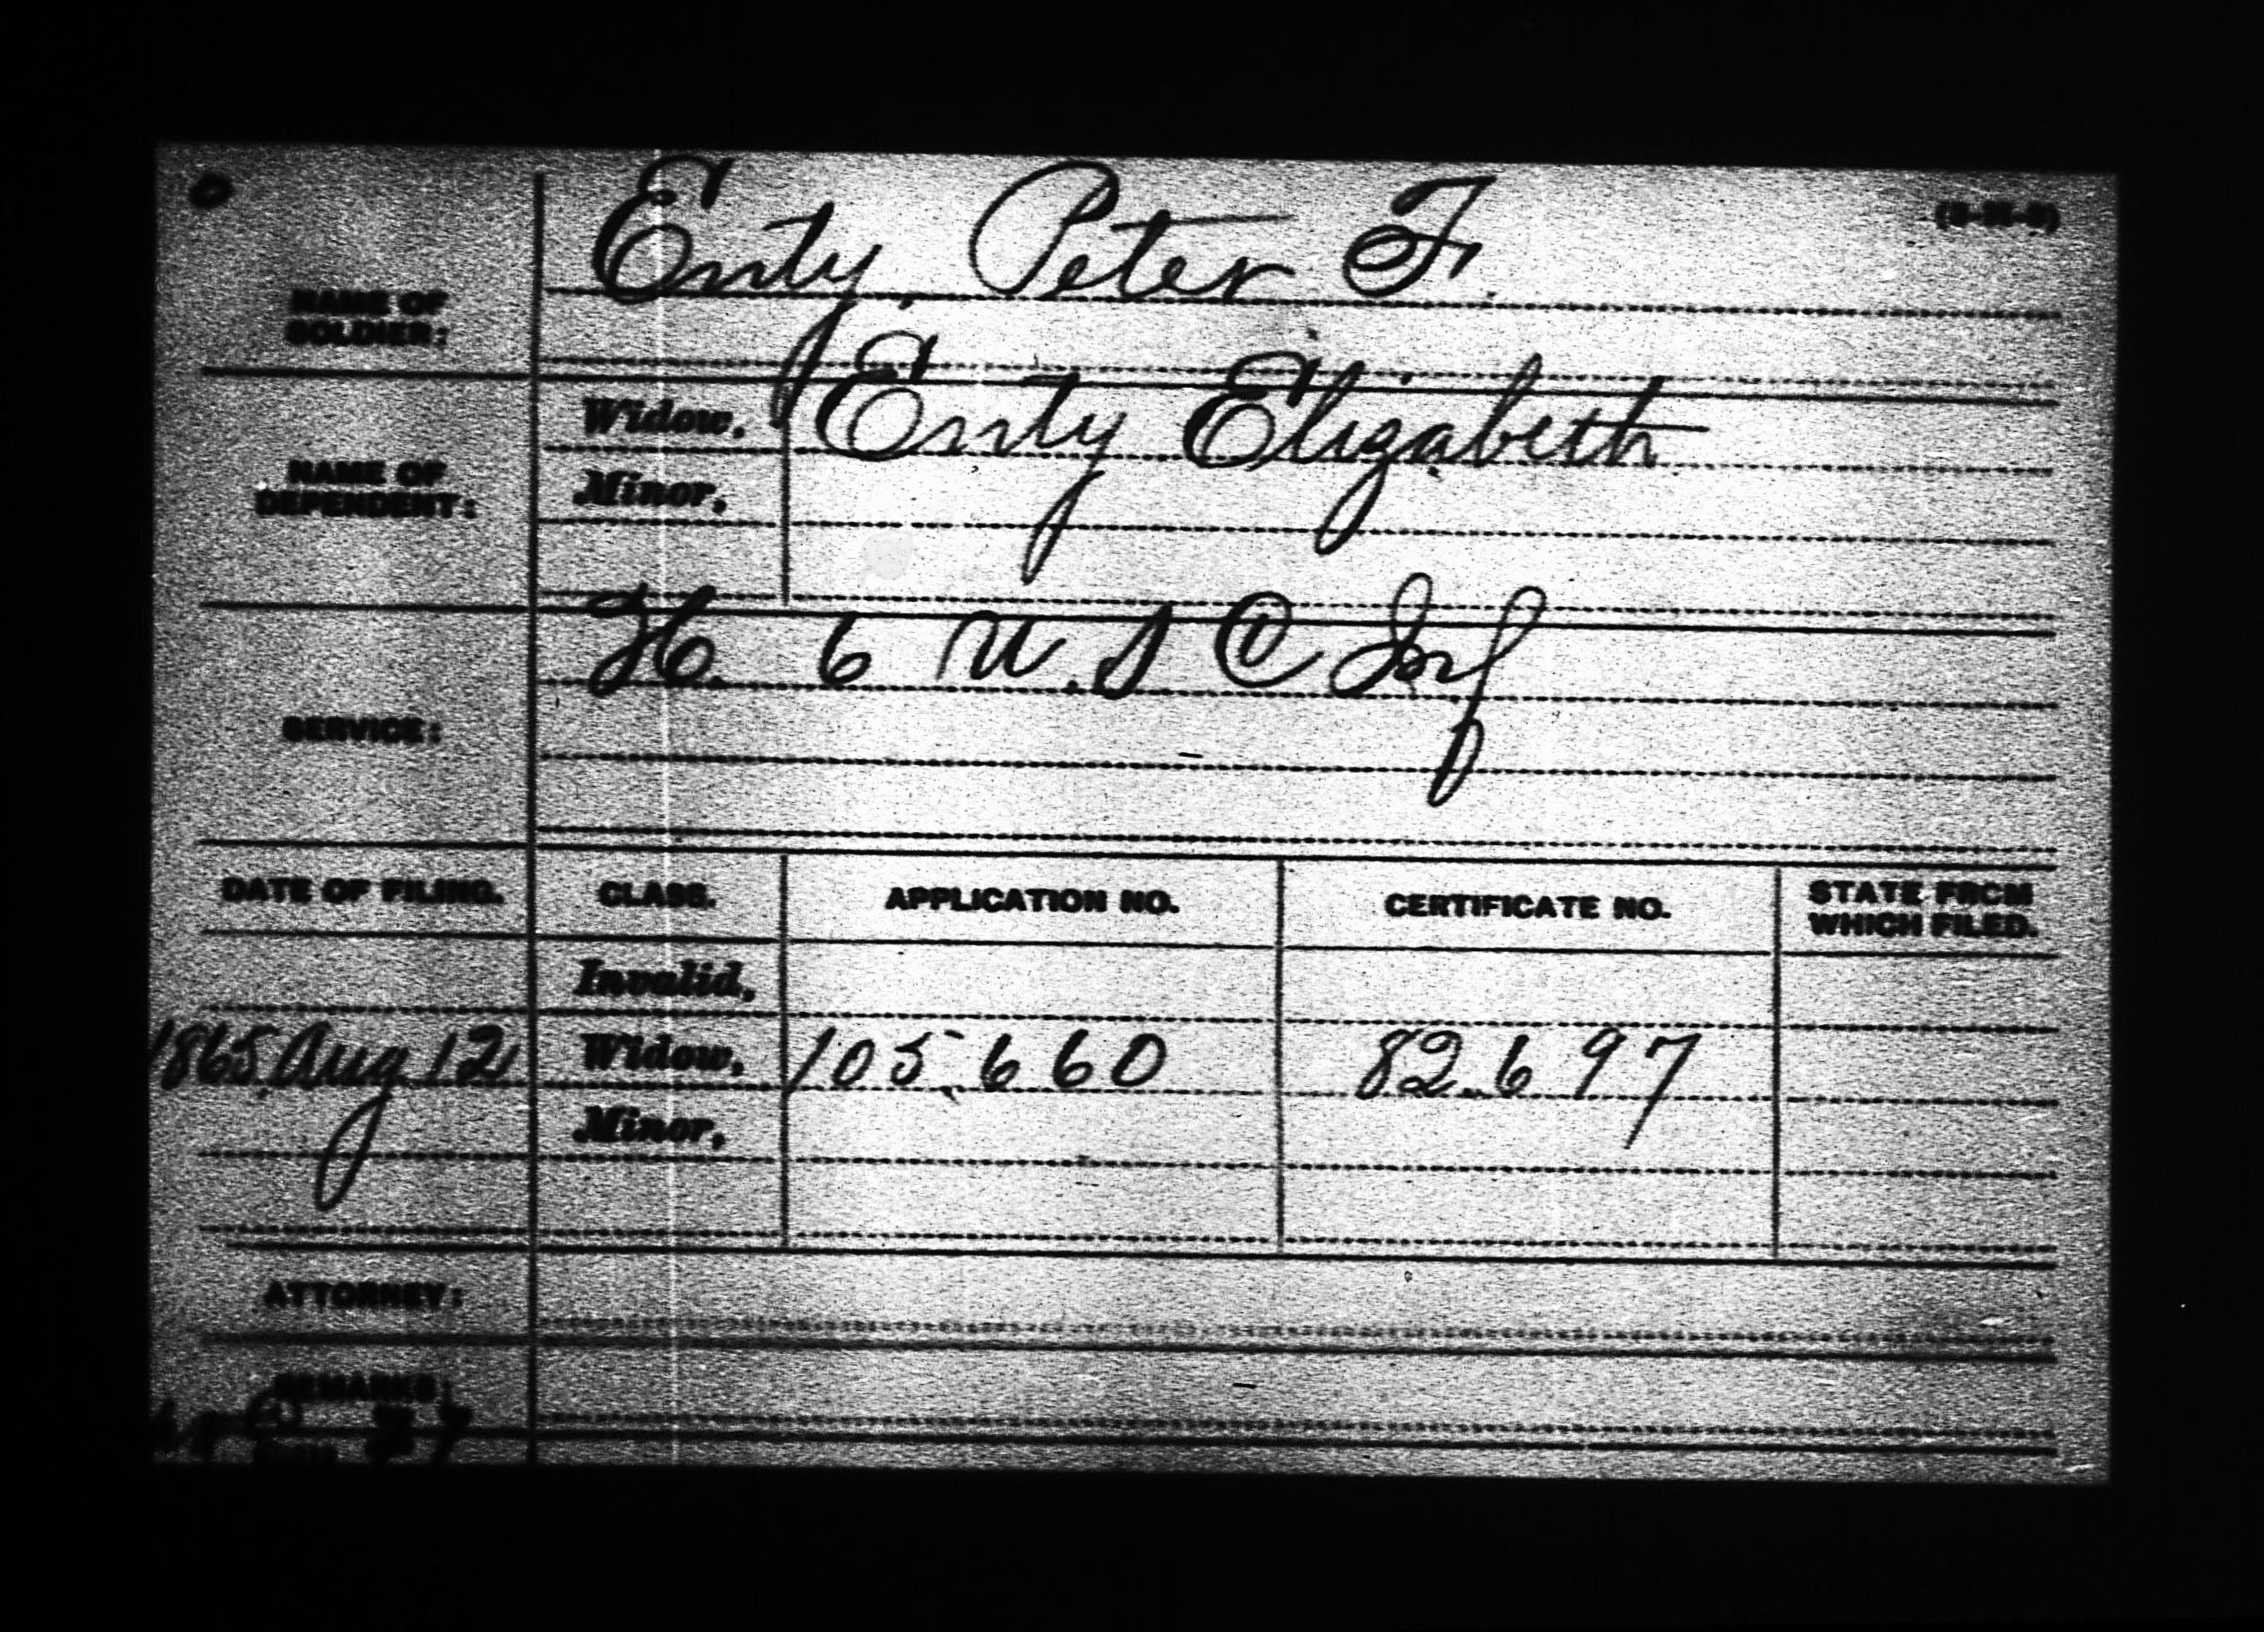 Enty, Peter F.
NAME OF
SOLDIER:
Widow, Enty Elizabeth
Minor,
NAME OF
DEPENDENT:
H. 6 U.S C Inf
SERVICE:
DATE OF FILING. CLASS. APPLICATION NO. CERTIFICATE NO. STATE FROM
WHICH FILED.
Invalid,
1865 Aug 12 Widow, 105,660 82,697
Minor,
ATTORNEY:
REMARKS: